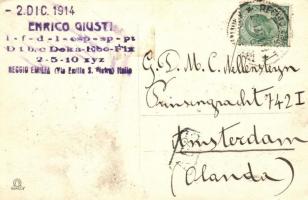 - 2. DIC. 1914
ENRICO GIUSTI
i-f-d-l-esp-sp-pt
Dibc Deka-Rec-Fix
2-5-10 xyz
REGGIO EMILIA (Via Emilia S. Pietro) Italia
G. D. M. C. Nellensteyn
Prinsengracht 742 I
Amsterdam
(Olanda)